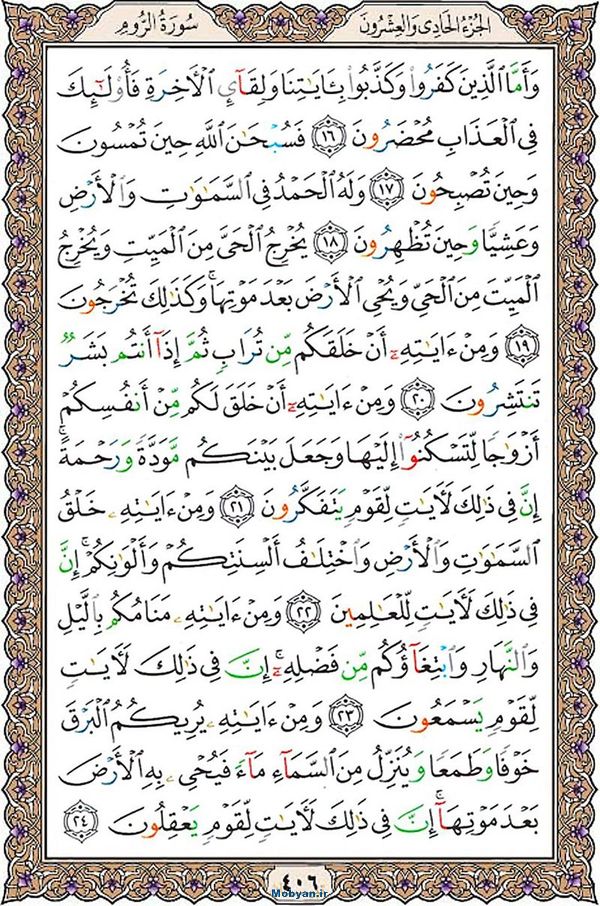 الجُزءُ الحَادِى وَالعِشرُونَ
سُورَةُ الرُّومِ
وَأَمَّا ٱلَّذِينَ كَفَرُواْ وَكَذَّبُواْ بِـَٔايَٰتِنَا وَلِقَآيِٕ ٱلۡأٓخِرَةِ فَأُوْلَٰٓئِكَ
فِى ٱلۡعَذَابِ مُحۡضَرُونَ ١٦ فَسُبۡحَٰنَ ٱللَّهِ حِينَ تُمۡسُونَ
وَحِينَ تُصۡبِحُونَ ١٧ وَلَهُ ٱلۡحَمۡدُ فِى ٱلسَّمَٰوَٰتِ وَٱلۡأَرۡضِ
وَعَشِيًّا وَحِينَ تُظۡهِرُونَ ١٨ يُخۡرِجُ ٱلۡحَىَّ مِنَ ٱلۡمَيِّتِ وَيُخۡرِجُ
ٱلۡمَيِّتَ مِنَ ٱلۡحَىِّ وَيُحۡىِ ٱلۡأَرۡضَ بَعۡدَ مَوۡتِهَاۚ وَكَذَٰلِكَ تُخۡرَجُونَ
١٩ وَمِنۡ ءَايَٰتِهِۦٓ أَنۡ خَلَقَكُم مِّن تُرَابٖ ثُمَّ إِذَآ أَنتُم بَشَرٞ
تَنتَشِرُونَ ٢٠ وَمِنۡ ءَايَٰتِهِۦٓ أَنۡ خَلَقَ لَكُم مِّنۡ أَنفُسِكُمۡ
أَزۡوَٰجٗا لِّتَسۡكُنُوٓاْ إِلَيۡهَا وَجَعَلَ بَيۡنَكُم مَّوَدَّةٗ وَرَحۡمَةًۚ
إِنَّ فِى ذَٰلِكَ لَأٓيَٰتٖ لِّقَوۡمٖ يَتَفَكَّرُونَ ٢١ وَمِنۡ ءَايَٰتِهِۦ خَلۡقُ
ٱلسَّمَٰوَٰتِ وَٱلۡأَرۡضِ وَٱخۡتِلَٰفُ أَلۡسِنَتِكُمۡ وَأَلۡوَٰنِكُمۡۚ إِنَّ
فِى ذَٰلِكَ لَأٓيَٰتٖ لِّلۡعَٰلِمِينَ ٢٢ وَمِنۡ ءَايَٰتِهِۦ مَنَامُكُم بِٱلَّيۡلِ
وَٱلنَّهَارِ وَٱبۡتِغَآؤُكُم مِّن فَضۡلِهِۦٓۚ إِنَّ فِى ذَٰلِكَ لَأٓيَٰتٖ
لِّقَوۡمٖ يَسۡمَعُونَ ٢٣ وَمِنۡ ءَايَٰتِهِۦ يُرِيكُمُ ٱلۡبَرۡقَ
خَوۡفٗا وَطَمَعٗا وَيُنَزِّلُ مِنَ ٱلسَّمَآءِ مَآءٗ فَيُحۡىِۦ بِهِ ٱلۡأَرۡضَ
بَعۡدَ مَوۡتِهَآۚ إِنَّ فِى ذَٰلِكَ لَأٓيَٰتٖ لِّقَوۡمٖ يَعۡقِلُونَ ٢٤
٤٠٦
Mobyan.ir